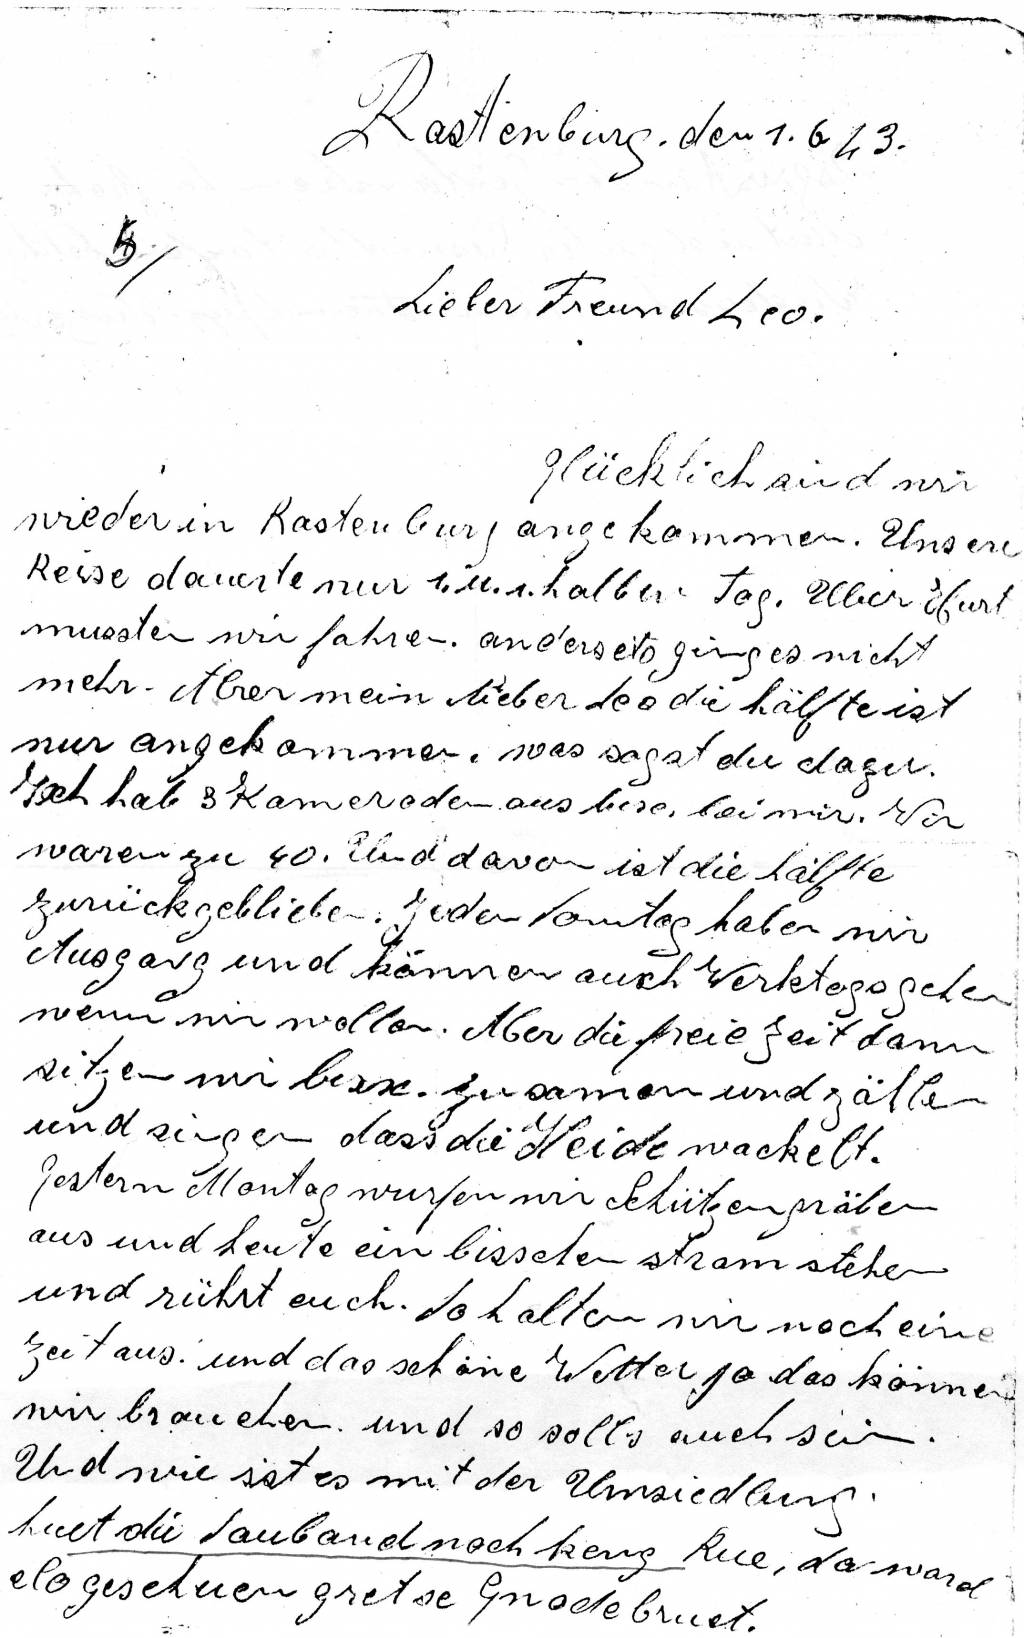 Rastenburg. den 1. 6 43.
5/
Lieber Freund Leo.
Glücklich sind wir
wieder in Rastenburg angekommen. Unsere
Reise dauerte nur 1. u. 1. halben Tag. Über
mussten wir fahren. anderseits ging es nicht
mehr. Aber mein lieber Leo die hälfte ist
nur angekommen. was sagst du dazu.
Ich hab 3 Kameraden aus bei mir. Wir
waren zu 40. Und davon ist die hälfte
zurückgeblieben. Jeden Sontag haben wir
Ausgang und können auch Werktags gehen
wenn wir wollen. Aber die freie Zeit dann
sitzen wir zusamen und zällen
und singen dass die Heide wackelt.
Gestern Montag wurfen wir Schützengräben
aus und heute ein bisschen stram stehen
und rührt euch. So halten wir noch eine
Zeit aus. und das schöne Wetter ja das können
wir brauchen. und so solls auch sein.
Und wie ist es mit der Umsiedlung.
huet die Sauband noch keng Rue, da ward
elo geschuen gret se Gnodebruet.